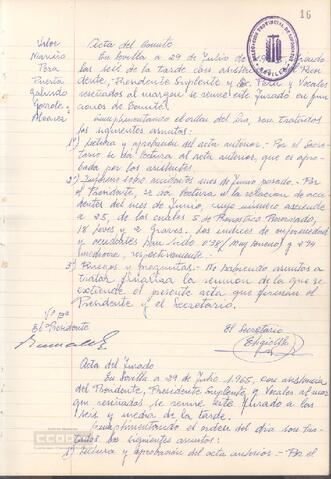 16
Valor
Acta del Comité
En Sevilla a 29 de Julio de
las seis de la tarde con asistencia del
Presidente, Presidente Suplente y Vocales
reseñados al margen se reune este Jurado en fun-
ciones de Comité.
Cumplimentando el orden del día, son tratados
los siguientes asuntos:
1º) Lectura y aprobación del acta anterior.- Por el Secre-
tario se da lectura al acta anterior, que es apro-
bada por los asistentes
2º) Informe sobre accidentes mes de Junio pasado.- Por
el Presidente, se da lectura a la relación de acci-
dentes del mes de Junio, cuyo número asciende
a 25, de los cuales 5 de Pronóstico Reservado,
18 leves y 2 graves. Los indices de
y accidentes han sido 0'38 (Muy bueno) y 2'94
(mediocre), respectivamente.-
3º) Ruegos y preguntas.- No habiendo asuntos a
tratar finaliza la reunión de la que se
extiende el presente acta que firman el
Presidente y el Secretario.
Vº Bº
El Presidente
El Secretario
Acta del Jurado
En Sevilla a 29 de Julio 1.965, con asistencia
del Presidente, Presidente Suplente y Vocales al mar-
gen reseñados se reune este Jurado a las
seis y media de la tarde.
Cumplimentando el orden del día son tra-
tados los siguientes asuntos:
1º) Lectura y aprobación del acta anterior.- Por el